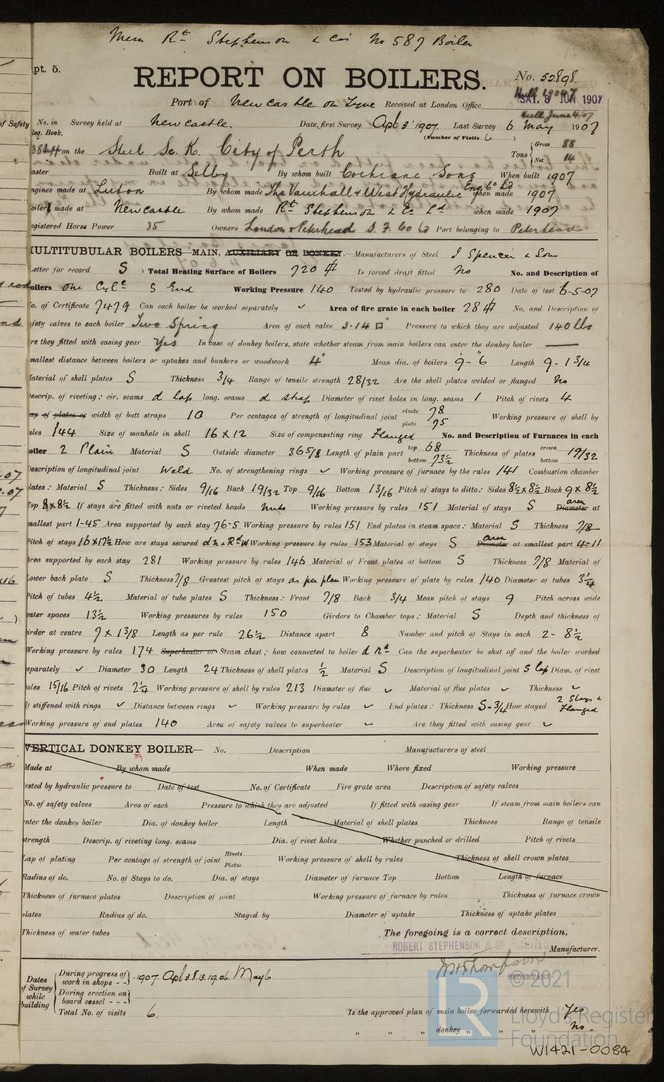 Mess Rt Stephenson & Co's No 587 Boiler
pt. 5.
REPORT ON BOILERS.
No. 52898
Port of Newcastle on Tyne Received at London Office SAT. 8 JUN 1907
No. in Survey held at Newcastle. Date, first Survey Apl 3 1907 Last Survey 6 May 1907
Reg. Book. (Number of Visits 6)
on the Steel Sc. K. City of Perth Tons Gross 88 Net 14
Master Built at Selby By whom built Cochrane & Sons When built 1907
Engines made at Luton By whom made The Vauxhall & West Hydraulic Eng Co Ld when made 1907
Boilers made at Newcastle By whom made Rt Stephenson & Co Ld when made 1907
Registered Horse Power 35 Owners London & Peterhead S. F. Co Ld Port belonging to Peterhead
MULTITUBULAR BOILERS — MAIN, AUXILIARY OR DONKEY.— Manufacturers of Steel J Spencer & Sons
Letter for record S Total Heating Surface of Boilers 720 Is forced draft fitted No No. and Description of
Boilers One Cylc S End Working Pressure 140 Tested by hydraulic pressure to 280 Date of test 6-5-07
No. of Certificate 7479 Can each boiler be worked separately ✓ Area of fire grate in each boiler 28 No. and Description of
safety valves to each boiler Two Spring Area of each valve 3.14 Pressure to which they are adjusted 140 lbs
Are they fitted with easing gear Yes In case of donkey boilers, state whether steam from main boilers can enter the donkey boiler —
Smallest distance between boilers or uptakes and bunkers or woodwork 4" Mean dia. of boilers 9-6 Length 9-1 3/4
Material of shell plates S Thickness 3/4 Range of tensile strength 28/32 Are the shell plates welded or flanged No
Descrip. of riveting: cir. seams d lap long. seams d strap Diameter of rivet holes in long. seams 1 Pitch of rivets 4
Lap of plates or width of butt straps 10 Per centages of strength of longitudinal joint rivets 78 plate 75 Working pressure of shell by
rules 144 Size of manhole in shell 16 x 12 Size of compensating ring Flanged No. and Description of Furnaces in each
boiler 2 Plain Material S Outside diameter 36 5/8 Length of plain part top 68 bottom 73 1/2 Thickness of plates crown bottom 19/32
Description of longitudinal joint Weld No. of strengthening rings ✓ Working pressure of furnace by the rules 141 Combustion chamber
plates: Material S Thickness: Sides 9/16 Back 19/32 Top 9/16 Bottom 13/16 Pitch of stays to ditto: Sides 8 1/2 x 8 1/2 Back 9 x 8 1/2
Top 8 x 8 1/2 If stays are fitted with nuts or riveted heads nuts Working pressure by rules 151 Material of stays S Diameter area at
smallest part 1-45 Area supported by each stay 76-5 Working pressure by rules 151 End plates in steam space: Material S Thickness 7/8
Pitch of stays 16 x 17 1/2 How are stays secured d n & R W Working pressure by rules 153 Material of stays S Diameter area at smallest part 4-11
Area supported by each stay 281 Working pressure by rules 146 Material of Front plates at bottom S Thickness 7/8 Material of
Lower back plate S Thickness 7/8 Greatest pitch of stays as per plan Working pressure of plate by rules 140 Diameter of tubes 3 1/4
Pitch of tubes 4 1/2 Material of tube plates S Thickness: Front 7/8 Back 3/4 Mean pitch of stays 9 Pitch across wide
water spaces 13 1/2 Working pressures by rules 150 Girders to Chamber tops: Material S Depth and thickness of
girder at centre 7 x 1 3/8 Length as per rule 26 1/2 Distance apart 8 Number and pitch of Stays in each 2 - 8 1/2
Working pressure by rules 174 Superheater or Steam chest; how connected to boiler d Rd Can the superheater be shut off and the boiler worked
separately ✓ Diameter 30 Length 24 Thickness of shell plates 1/2 Material S Description of longitudinal joint S Lap Diam. of rivet
holes 15/16 Pitch of rivets 2 1/4 Working pressure of shell by rules 213 Diameter of flue ✓ Material of flue plates ✓ Thickness ✓
If stiffened with rings ✓ Distance between rings ✓ Working pressure by rules ✓ End plates: Thickness S-3/4 How stayed 2 Stays & Flanged
Working pressure of end plates 140 Area of safety valves to superheater ✓ Are they fitted with easing gear ✓
VERTICAL DONKEY BOILER— No. Description Manufacturers of steel
Made at By whom made When made Where fixed Working pressure
tested by hydraulic pressure to Date of test No. of Certificate Fire grate area Description of safety valves
No. of safety valves Area of each Pressure to which they are adjusted If fitted with easing gear If steam from main boilers can
enter the donkey boiler Dia. of donkey boiler Length Material of shell plates Thickness Range of tensile
strength Descrip. of riveting long. seams Dia. of rivet holes Whether punched or drilled Pitch of rivets
Lap of plating Per centage of strength of joint Rivets Plates Working pressure of shell by rules Thickness of shell crown plates
Radius of do. No. of Stays to do. Dia. of stays Diameter of furnace Top Bottom Length of furnace
Thickness of furnace plates Description of joint Working pressure of furnace by rules Thickness of furnace crown
plates Radius of do. Stayed by Diameter of uptake Thickness of uptake plates
Thickness of water tubes The foregoing is a correct description,
ROBERT STEPHENSON & CO. LIMITED Manufacturer.
Dates of Survey while building During progress of work in shops - - 1907. Apl 3. 8. 19. 26. May 6
During erection on board vessel - - -
Total No. of visits 6. Is the approved plan of main boiler forwarded herewith Yes
" " " donkey " " " No.
LR © 2021
Lloyd's Register
Foundation
W1421-0084